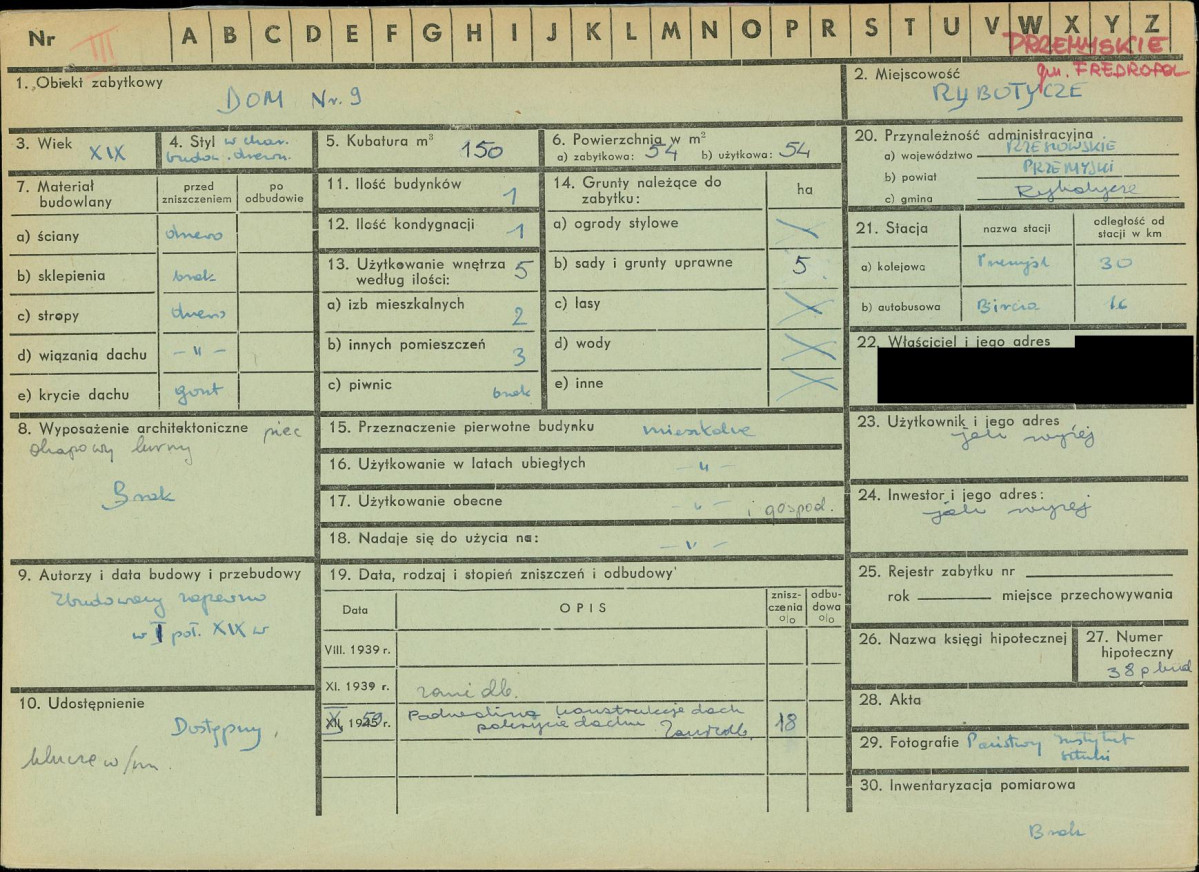 Nr III A B C D E F G H I J K L M N O P R S T U V W X Y Z
PRZEMYSKIE
gm. FREDROPOL
1. Obiekt zabytkowy
DOM Nr. 9
2. Miejscowość
RYBOTYCZE
3. Wiek XIX
4. Styl w char.
budow. drewn.
5. Kubatura m³ 150
6. Powierzchnia w m²
a) zabytkowa: 54 b) użytkowa: 54
20. Przynależność administracyjna
a) województwo RZESZOWSKIE
b) powiat PRZEMYSKI
c) gmina Rybotycze
7. Materiał budowlany
przed zniszczeniem
po odbudowie
a) ściany drewno
b) sklepienia brak
c) stropy drewno
d) wiązania dachu – " –
e) krycie dachu gont
11. Ilość budynków 1
12. Ilość kondygnacji 1
13. Użytkowanie wnętrza 5
według ilości:
a) izb mieszkalnych 2
b) innych pomieszczeń 3
c) piwnic brak
14. Grunty należące do
zabytku:
ha
a) ogrody stylowe
b) sady i grunty uprawne 5
c) lasy
d) wody
e) inne
21. Stacja
nazwa stacji
odległość od
stacji w km
a) kolejowa Przemyśl 30
b) autobusowa Bircza 16
22. Właściciel i jego adres
8. Wyposażenie architektoniczne piec
okapowy kurny
Brak
15. Przeznaczenie pierwotne budynku mieszkalne
16. Użytkowanie w latach ubiegłych – " –
17. Użytkowanie obecne – " – i gospod.
18. Nadaje się do użycia na: – " –
23. Użytkownik i jego adres
jak wyżej
24. Inwestor i jego adres:
jak wyżej
9. Autorzy i data budowy i przebudowy
Zbudowany zapewno
w I poł. XIX w
19. Data, rodzaj i stopień zniszczeń i odbudowy
Data
OPIS
znisz-
czenia
%
odbu-
dowa
%
VIII. 1939 r.
XI. 1939 r. zanidb.
XII. 1945 r. 59 Podwalina konstrukcje dach
pokrycie dachu Zaniedb. 18
25. Rejestr zabytku nr
rok miejsce przechowywania
26. Nazwa księgi hipotecznej
27. Numer
hipoteczny
38 p bud
10. Udostępnienie
Dostępny.
klucze w/m.
28. Akta
29. Fotografie Państwowy Instytut
Sztuki
30. Inwentaryzacja pomiarowa
Brak